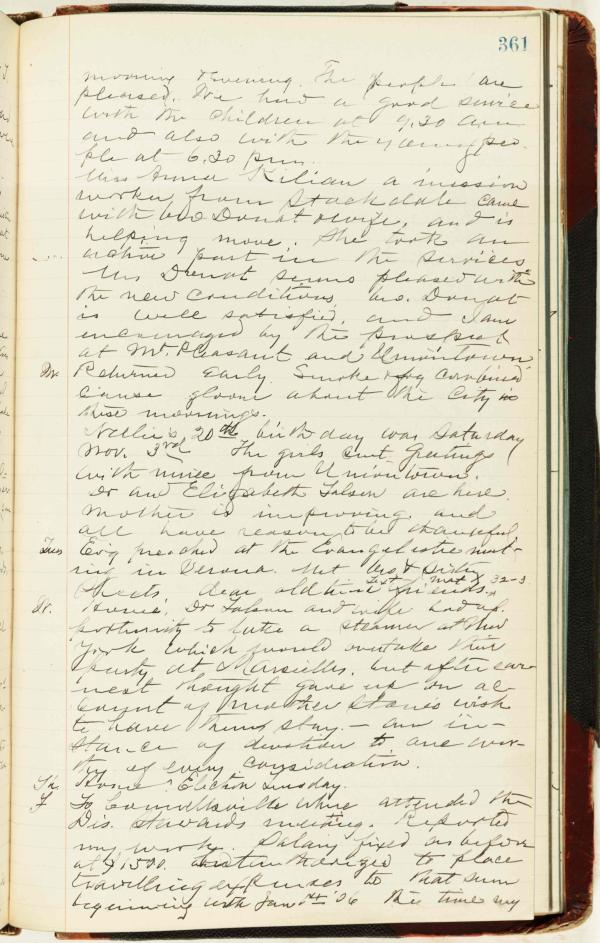 361
morning & evening. The people are
pleased. We had a good service
with the children at 9.30 am
and also with the young peo-
ple at 6.30 pm.
Miss Anna Kilian a mission
worker from Stockdale came
with bro Donat & wife, and is
helping move. She took an
active part in the services
Mrs Donat seems pleased with
the new conditions, bro. Donat
is well satisfied, and I am
encouraged by the prospect
at Mt. Pleasant and Uniontown.
Returned Early. Smoke & fog combined
cause gloom about the City in
these mornings.
Nellie's 20th birthday was Saturday
Nov. 3rd The girls sent Greetings
with mine from Uniontown.
Dr and Elizabeth Folsom are here.
Mother is improving and
all have reason to be thankful
Tues Ev'g preached at the Evangelistic meet-
ing in Verona. Met bro & sister
Sheets, dear old time friends.
Text Mat 32-3
Home. Dr Folsom and wife had op-
portunity to take a steamer at New
York which would overtake their
party at Marseilles, but after ear-
nest thought gave up on ac-
count of Mother Stone's wish
to have them stay. - an in-
stance of devotion to one wor-
thy of every consideration.
Th. Home. Election Tuesday.
F To Connellsville where attended the
Dis. Stewards meeting. Reported
my work. Salary fixed as before
at $1500. arranged to place
travelling expenses to that sum
beginning with Jan 1st '06 this time my